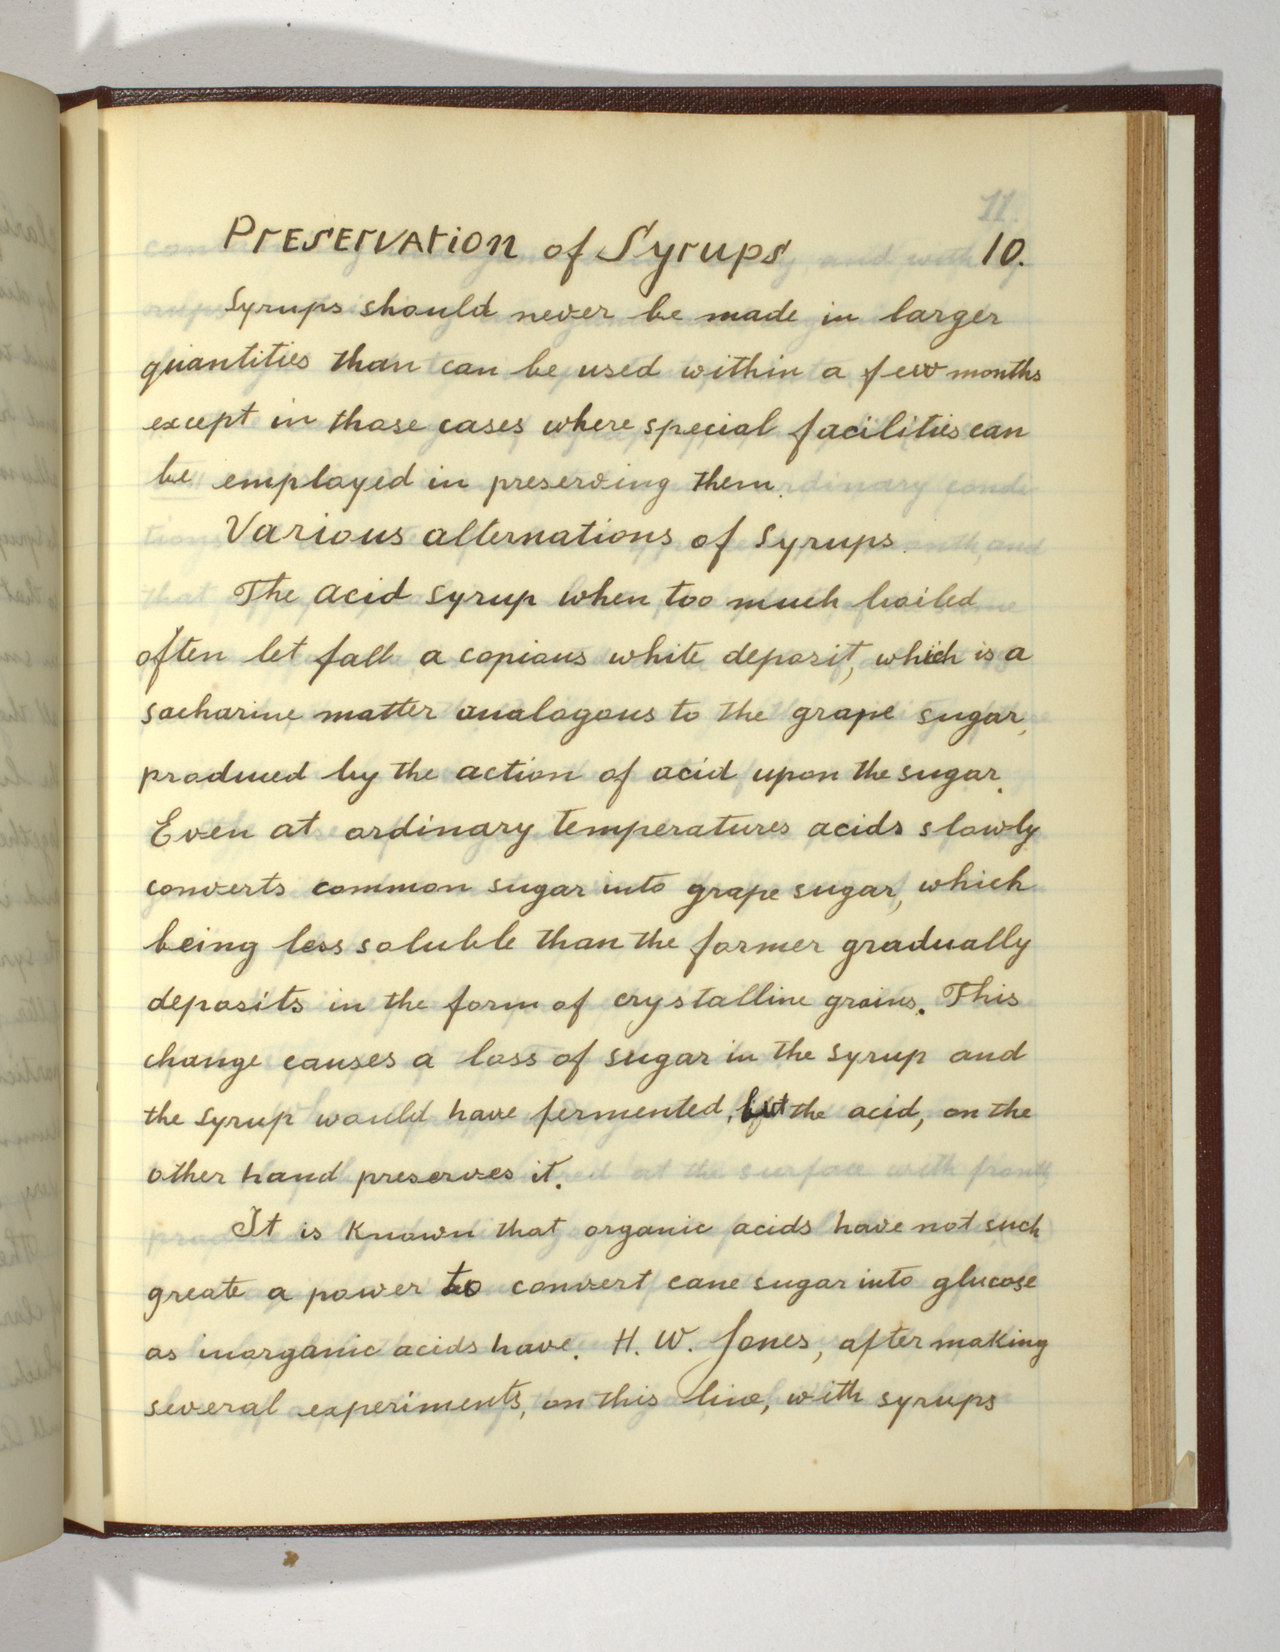 Preservation of Syrups 10.
Syrups should never be made in larger
quantities than can be used within a few months
except in those cases where special facilities can
be employed in preserving them.
Various alternations of Syrups.
The acid syrup when too much boiled
often let fall a copious white deposit, which is a
sacharine matter analogous to the grape sugar,
produced by the action of acid upon the sugar.
Even at ordinary temperatures acids slowly
converts common sugar into grape sugar, which
being less soluble than the former gradually
deposits in the form of crystalline grains. This
change causes a loss of sugar in the syrup and
the syrup would have fermented, but the acid, on the
other hand preserves it.
It is known that organic acids have not such
greate a power to convert cane sugar into glucose
as inorganic acids have. H. W. Jones, after making
several experiments, on this line, with syrups